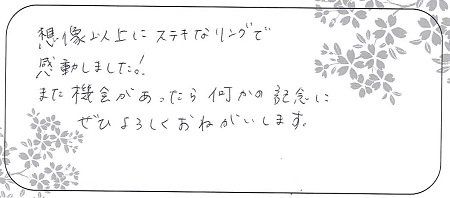 想像以上にステキなリングで
感動しました。!
また機会があったら何かの記念に
ぜひよろしくおねがいします。